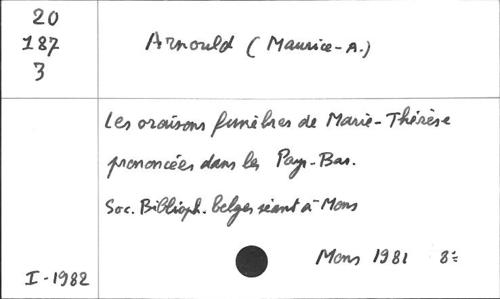 20
187
3
Arnould (Maurice-A.)
Les oraisons funèbres de Marie-Thérèse
prononcées dans les Pays-Bas.
Soc. Biblioph. belges séant à Mons
Mons 1981 8=
I-1982